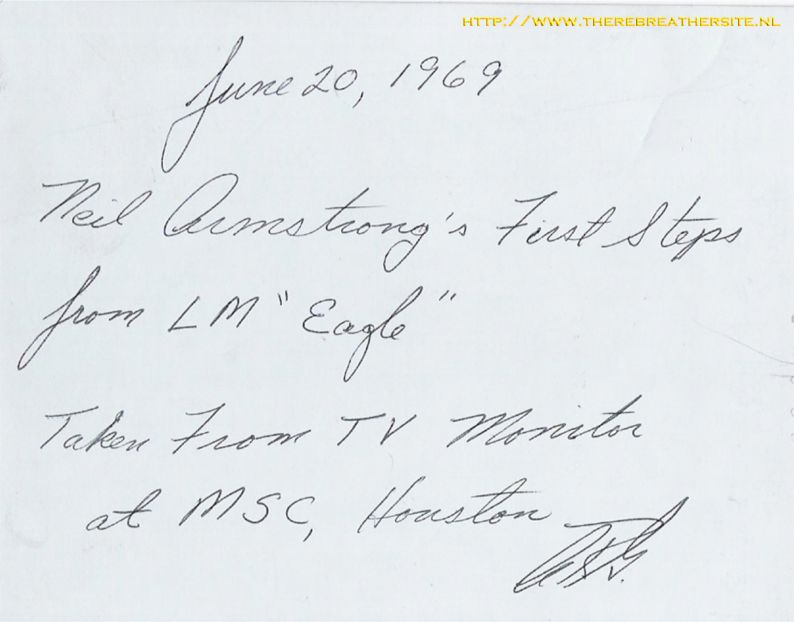 HTTP://WWW.THEREBREATHERSITE.NL
June 20, 1969
Neil Armstrong's First Steps
from LM "Eagle"
Taken From TV Monitor
at MSC, Houston